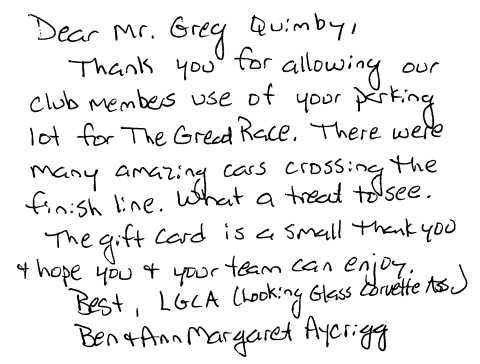 Dear Mr. Greg Quimby,
Thank you for allowing our
club members use of your parking
lot for The Great Race. There were
many amazing cars crossing the
finish line. What a treat to see.
The gift card is a small thank you
& hope you & your team can enjoy.
Best, LGCA (Looking Glass Corvette Ass.)
Ben & Ann Margaret Aycrigg